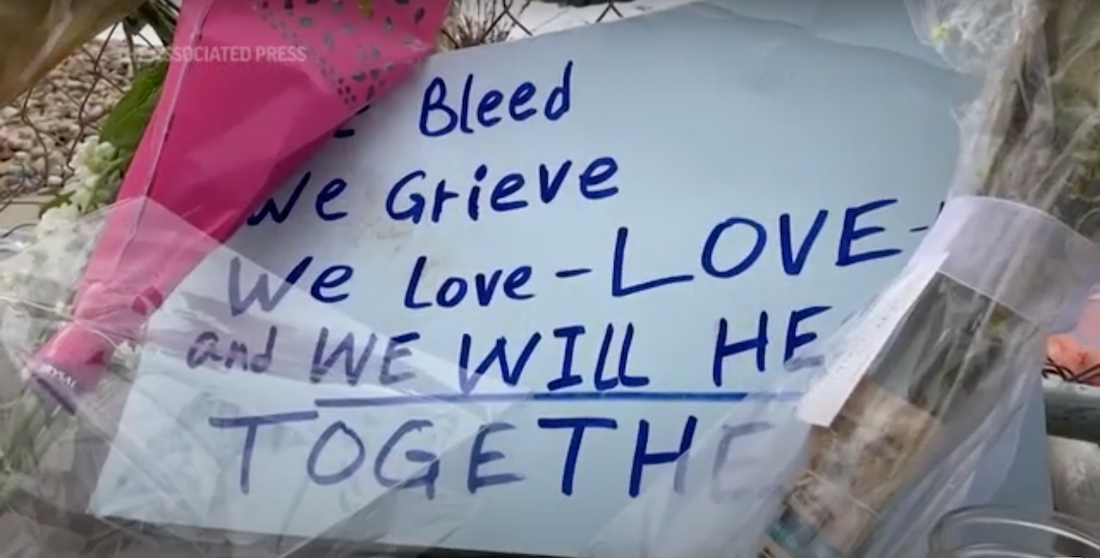 THE ASSOCIATED PRESS
Bleed
We Grieve
We Love - LOVE -
and WE WILL HE
TOGETHE